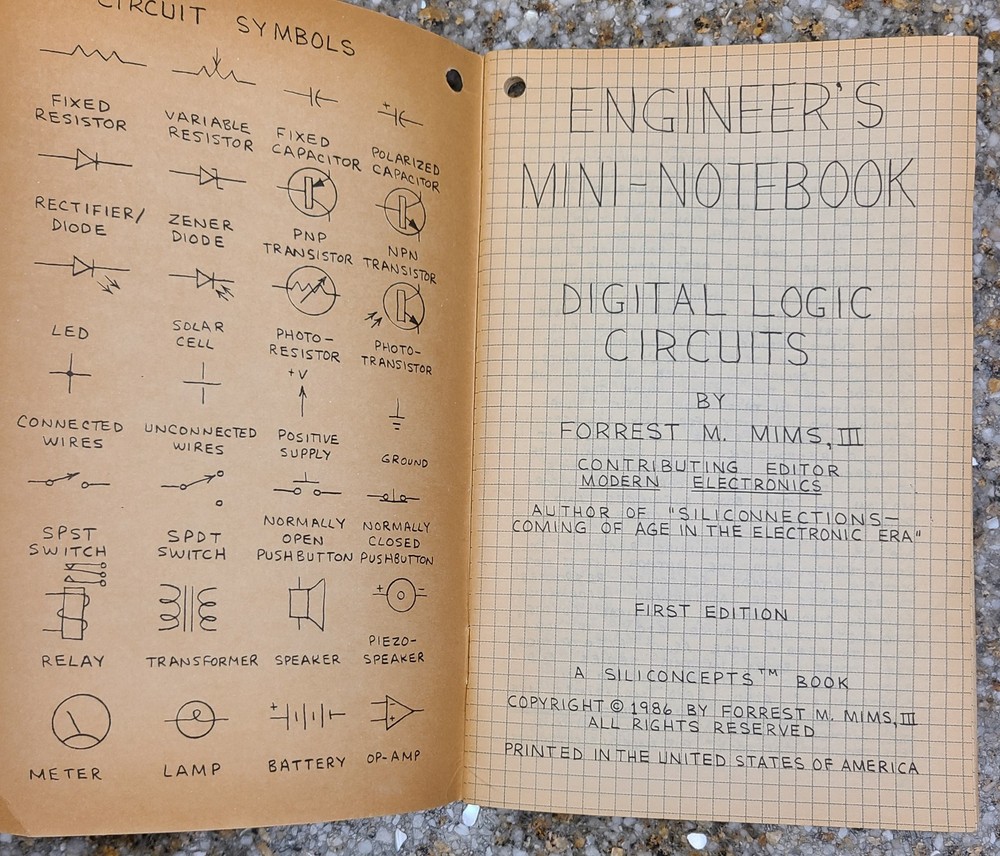 CIRCUIT SYMBOLS
FIXED
RESISTOR
VARIABLE
RESISTOR
FIXED
CAPACITOR
+
POLARIZED
CAPACITOR
RECTIFIER/
DIODE
ZENER
DIODE
PNP
TRANSISTOR
NPN
TRANSISTOR
LED
SOLAR
CELL
PHOTO-
RESISTOR
PHOTO-
TRANSISTOR
CONNECTED
WIRES
UNCONNECTED
WIRES
+V
POSITIVE
SUPPLY
GROUND
SPST
SWITCH
SPDT
SWITCH
NORMALLY
OPEN
PUSHBUTTON
NORMALLY
CLOSED
PUSHBUTTON
RELAY
TRANSFORMER
SPEAKER
+ −
PIEZO-
SPEAKER
METER
LAMP
+ −
BATTERY
− +
OP-AMP
ENGINEER'S
MINI-NOTEBOOK
DIGITAL LOGIC
CIRCUITS
BY
FORREST M. MIMS, III
CONTRIBUTING EDITOR
MODERN ELECTRONICS
AUTHOR OF "SILICONNECTIONS—
COMING OF AGE IN THE ELECTRONIC ERA"
FIRST EDITION
A SILICONCEPTS™ BOOK
COPYRIGHT © 1986 BY FORREST M. MIMS, III
ALL RIGHTS RESERVED
PRINTED IN THE UNITED STATES OF AMERICA